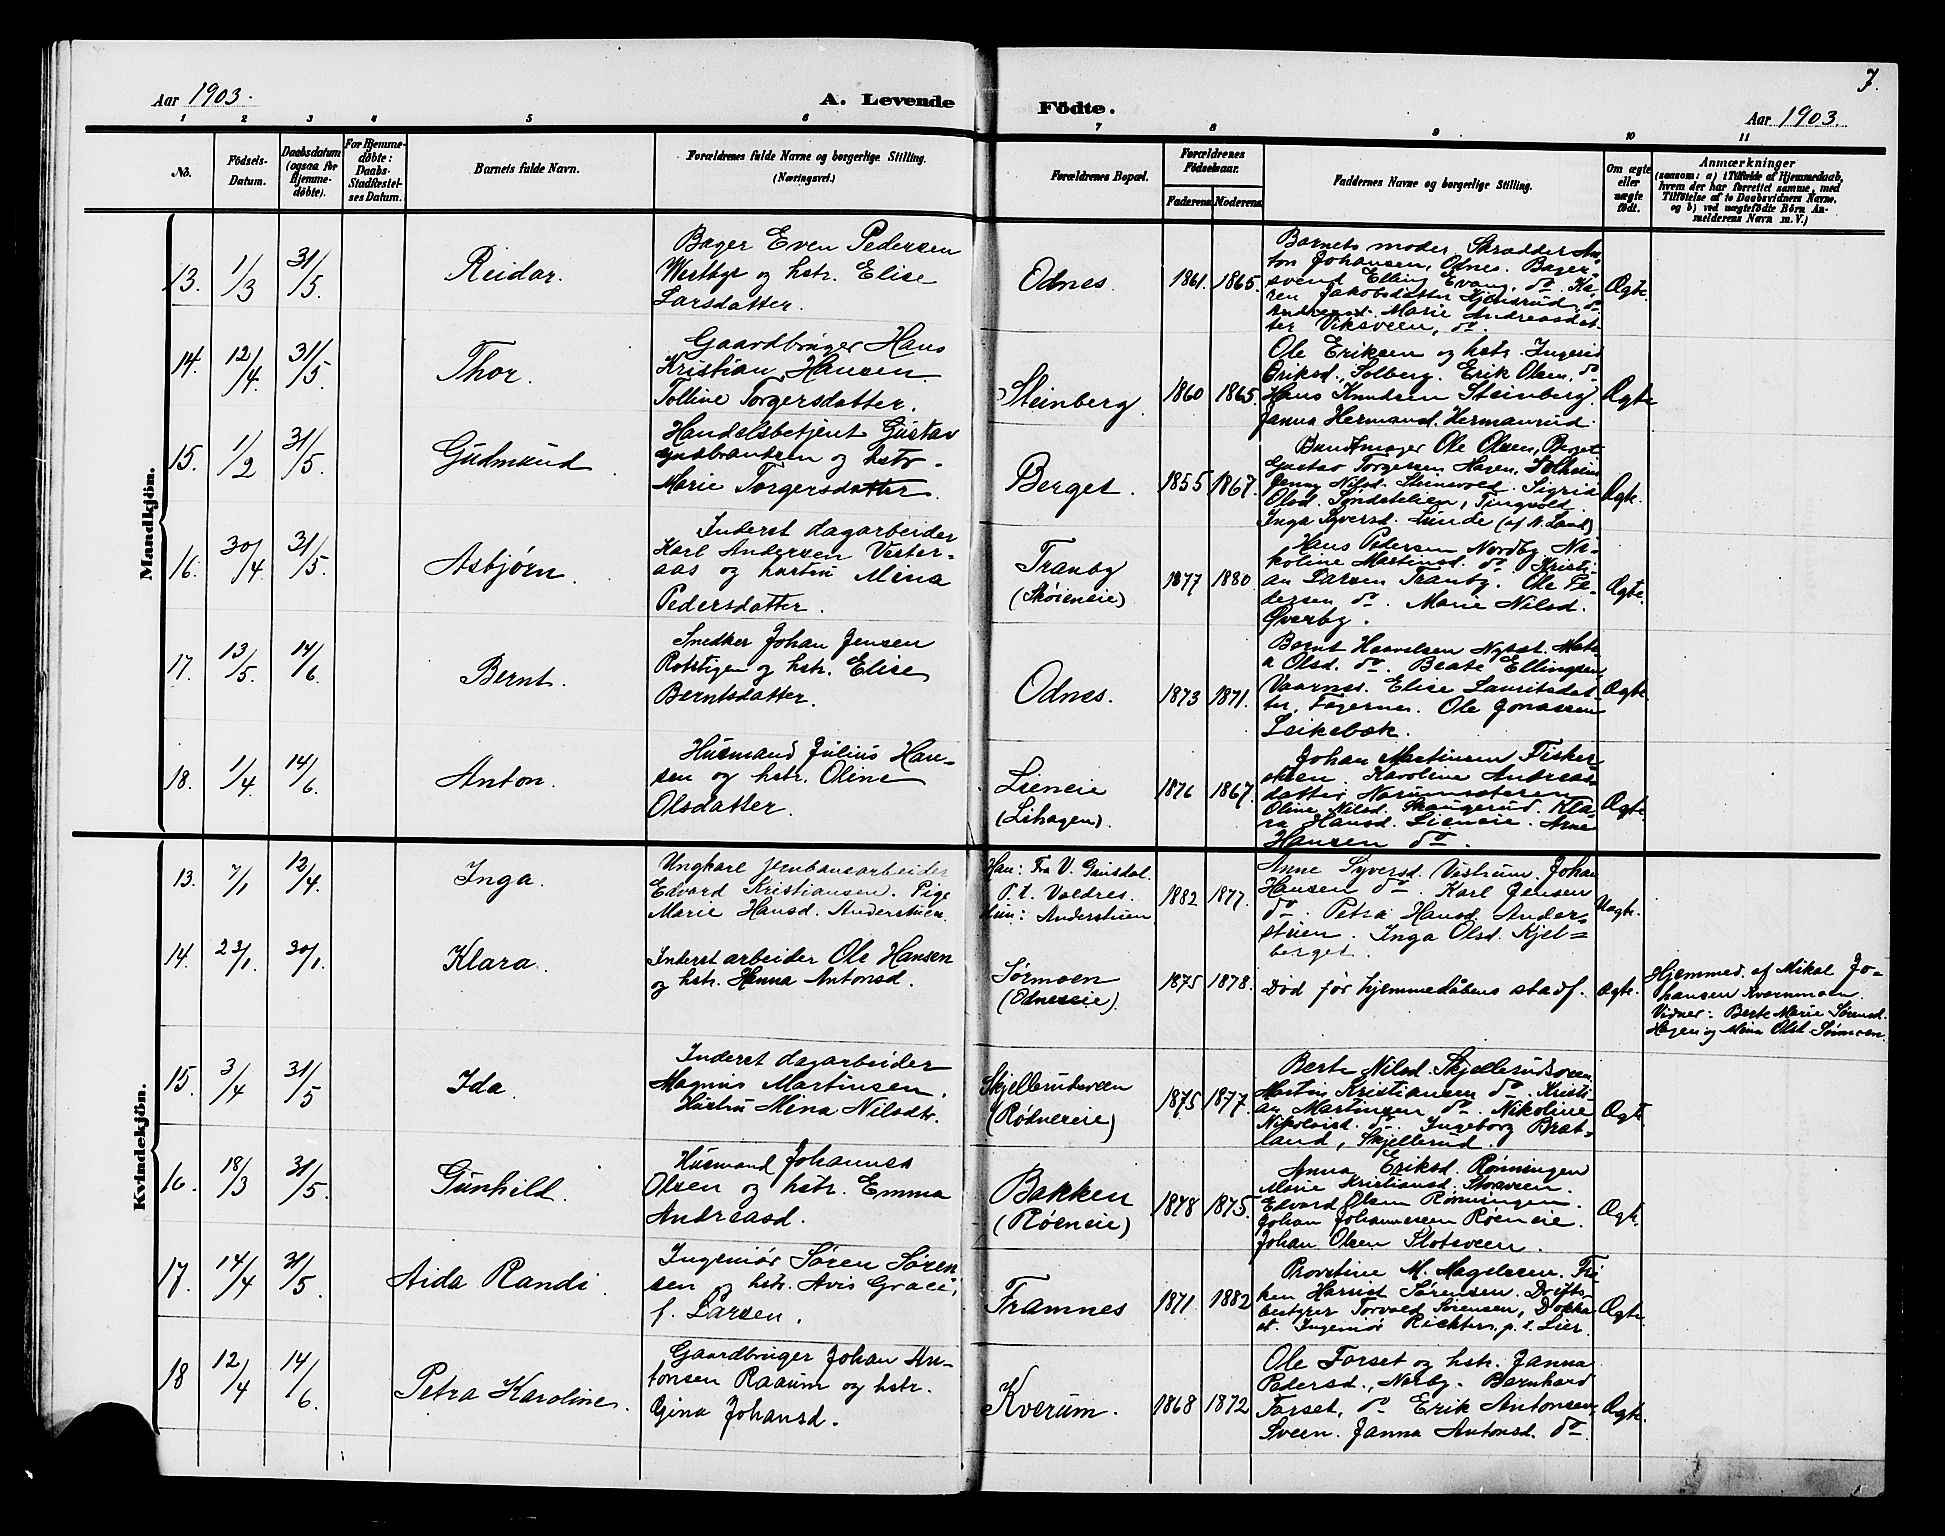 Aar 1903.
A. Levende Födte.
Aar 1903.
7.
1 2 3 4 5 6 7 8 9 10 11
No.
Födsels-
Datum.
Daabsdatum
(ogsaa for
Hjemme-
döbte).
For Hjemme-
döbte:
Daabs-
Stadfæstel-
ses Datum.
Barnets fulde Navn.
Forældrenes fulde Navne og borgerlige Stilling.
(Næringsvei.)
Forældrenes Bopæl.
Forældrenes
Födselsaar.
Faderens. Moderens.
Faddernes Navne og borgerlige Stilling.
Om ægte
eller
uægte
födt.
Anmærkninger
(saasom: a) i Tilfælde af Hjemmedaab,
hvem der har forrettet samme, med
Tilföielse af to Daabsvidners Navne,
og b) ved uægtefödte Börn An-
melderens Navn m. V.)
Mandkjön.
13. 1/3 31/5. Reidar.
Bager Even Pedersen
Westbye og hstr. Elise
Larsdatter.
Odnes. 1861. 1865.
Barnets moder, Skrædder An-
ton Johansen, Odnes. Bager-
svend Elling Evang, do. Ka-
ren Jakobsdatter Kjensrud, do
Marie Andreasdat-
ter Viksveen, do.
Ægte.
14. 12/4 31/5. Thor.
Gaardbruger Hans
Kristian Hansen
Tolline Torgersdatter.
Steinberg. 1860 1865.
Ole Eriksen og hstr. Ingerid
Eriksd., Solberg. Erik Olsen, do
Hans Knudsen Steinberg.
Janna Hermansd. Hermanrud.
Ægte
15. 1/2 31/5. Gudmund
Handelsbetjent Gustav
Gudbrandsen og hstr.
Marie Torgersdatter.
Berget. 1855 1867.
Buntmager Ole Olsen, Berget
Gustav Torgersen Hagen,
Jenny Nilsd. Steinsvold. Sigrid
Olsd. Søndstelien, Tingvold.
Inga Syversd. Lunde (af N. Land)
Ægte.
16. 30/4 31/5. Asbjørn.
Inderst dagarbeider
Karl Andersen Vester-
aas og hustru Mina
Pedersdatter.
Tranby
(Skøieneie) 1877 1880
Hans Petersen Nordby. Ni-
koline Martinsd. do. Kristi-
an Larsen Tranby. Ole Pe-
dersen do. Marie Nilsd.
Øverby.
Ægte.
17. 13/5. 14/6. Bernt.
Snedker Johan Jensen
Rotstigen og hstr. Elise
Berntsdatter.
Odnes. 1873 1871.
Bernt Haavelsen Nyset. Mat-
ea Olsd. do. Beate Ellingsen
Vaarnes. Elise Lauritsdat-
ter, Fagernes. Ole Jonassen
Leikebæk.
Ægte.
18. 1/4 14/6. Anton.
Husmand Julius Han-
sen og hstr. Oline
Olsdatter.
Lieneie
(Lihagen). 1876 1867.
Johan Martinsen Fisker-
stuen. Karoline Andreas-
datter Narumsæteren.
Oline Nilsd. Skaugerud. Kla-
ra Hansd. Lieneie. Arne
Hansen do.
Ægte.
Kvindekjön.
13. 7/1 12/4. Inga.
Ungkarl Jernbanearbeider
Edvard Kristiansen. Pige
Marie Hansd. Anderstuen.
Han: Fra V. Gausdal.
P. t. Valdres.
Hun: Anderstuen 1882 1877.
Anne Syversd. Vistrum. Johan
Hansen do. Karl Jensen
do. Petra Hansd. Ander-
stuen. Inga Olsd. Kjel-
berget.
Uægte.
14. 23/1. 30/1. Klara.
Inderst arbeider Ole Hansen
og hstr. Hanna Antonsd.
Sørmoen
(Odneseie) 1875 1878.
Død før hjemmedåbens stadf.
Ægte.
Hjemmed. af Mikal Jo-
hansen Kvernmoen.
Vidner: Berte Marie Sørensd.
Hagen og Mina Olsd. Sørmoen.
15. 3/4 31/5 Ida.
Inderst dagarbeider
Magnus Martinsen.
Hustru Mina Nilsdtr.
Skjellerudsveen
(Rødnereie) 1875 1877.
Berte Nilsd. Skjellerudsveen
Martin Kristiansen do. Kristi-
an Martinsen do. Nikoline
Nikolaisd. do. Ingeborg Brat-
land, Skjellerud.
Ægte
16. 18/3 31/5. Gunhild.
Husmand Johannes
Olsen og hstr. Emma
Andreasd.
Bakken
(Røeneie) 1878 1875.
Anna Eriksd. Rønningen
Marie Kristiansd. Storsveen.
Edvard Olsen Rønningen.
Johan Johannessen Røeneie.
Johan Olsen Slotsveen.
Ægte.
17. 14/4 31/5. Aida Randi.
Ingeniør Søren Søren-
sen og hstr. Avis Graci,
f. Larsen.
Framnes 1871. 1882
Provstine M. Magelssen. Frø-
ken Harriet Sørensen. Drifts-
bestyrer Torvald Sørensen, Dokka
st. Ingeniør Richter, p. t. Lier.
Ægte.
18 12/4 14/6. Petra Karoline.
Gaardbruger Johan An-
tonsen Raaum og hstr.
Gina Johansd.
Kverum. 1868 1872
Ole Farset og hstr. Janna
Pedersd., Nørby. Bernhard
Farset, do Erik Antonsen,
Sveen. Janna Antonsd. do
Ægte.